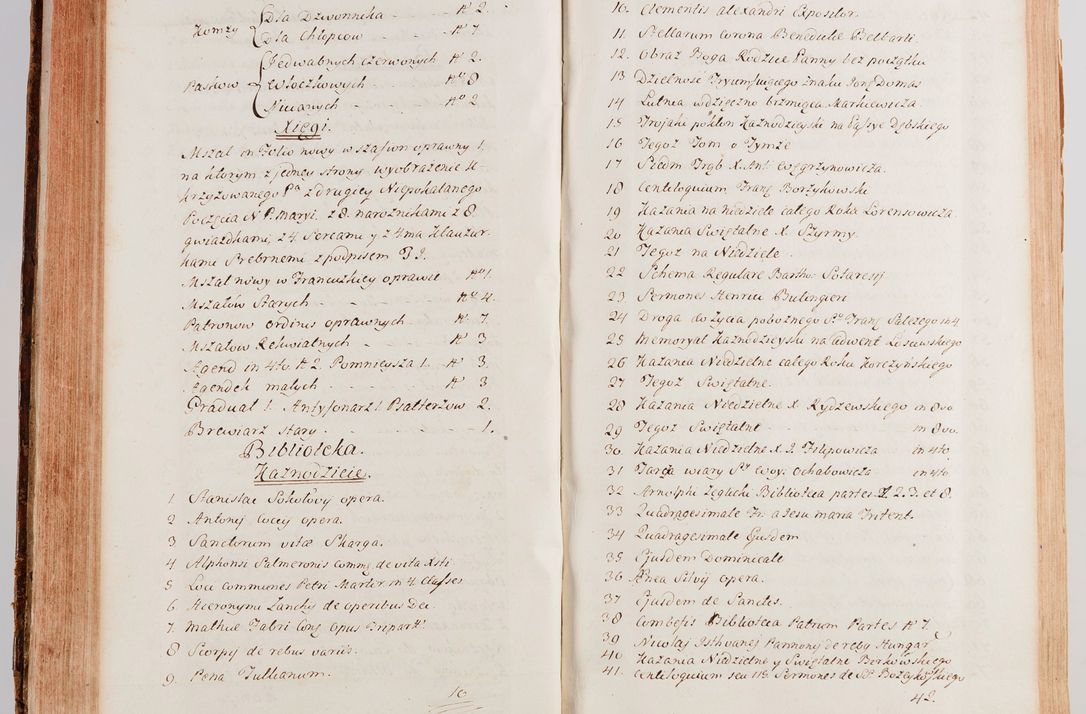 Komży Dla Dzwonnika - - N° 2.
Dla Chłopcow - - N° 7
Jedwabnych czerwonych N° 2.
Paskow Włoczkowych - - N° 8
Nicianych - - N° 2
Xięgi.
Mszal in Folio nowy w szafion oprawny 1.
na ktorym z jedney strony wyobrażenie U-
krzyżowanego Pa z drugiey Niepokalanego
Poczęcia N. P. Maryi. z 8. narożnikami z 8.
gwiazdkami, z 4. Sercami y z 4ma Klauzur-
kami Srebrnemi z podpisem
Mszal nowy w Francuzkiey oprawie N° 1.
Mszałow Starych - - - N° 4.
Patronow ordinis oprawnych - N° 7.
Mszałow Rekwialnych - N° 3
Agend in 4to. N° 2. Pomnieysza 1. N° 3.
Agendek małych - - N° 3
Gradual 1. Antyfonarz 1. Psalterzow 2.
Brewiarz stary - - - 1.
Biblioteka.
Kaznodzieie.
1 Stanislai Sokołovij opera.
2 Antonij Coceij opera.
3 Sanctorum vitæ Skarga.
4 Alphonsi Salmeronis comm. de vita Xsti
5 Loci communes Petri Marter. in 4. Classes
6 Hieronymi Zanchij de operibus Dei
7. Mathiæ Fabri Conc. Opus Tripartt.
8 Scorpij de rebus variis.
9. Pena Tullianum.
10
10. Clementis alexandri Expositor.
11. Stellarum corona Benedicti Belbarti.
12. Obraz Boga Rodzicę Panny bez początku
13 Dzielność Tryumfuiącego znaku Domas
14 Lutnia wdzięczno brzmiąca Markiewicza.
15 Trojaki pokłon Kaznodzieyski na Dębskiego
16 Tegoż Tom o Tymże
17 Siedm Trąb X. Ant. Węgrzynowicza.
18 Centiloquium Franc. Borzykowski
19 Kazania na niedziele całego Roku Lorensowicza.
20 Kazania Swiętalne X. Szyrmy.
21 Tegoż na Niedziele
22 Schema Regulare Barth. Sotaresij
23. Sermones Henrici Bulengieri
24 Droga do życia pobożnego Sgo Franc. Salezego in 4
25 Memoryał Kaznodzieyski na adwent Losiewskiego
26 Kazania Niedzielne całego Roku Korczyńskiego
27 Tegoż Swiętalne.
28 Kazania Niedzielne X. Rydzewskiego in 8vo
29 Tegoż Swiętalne - - in 8vo.
30 Kazania Niedzielne X. J. Filipowicza in 4to.
31 Tarcza wiary Sey Ochabowicza in 4to.
32 Arnolphi Żeglicki Bibliotheca partes 1 2. 3. et 8.
33 Quadragesimale Fr. a Jesu maria Trident.
34 Quadragesimale Ejusdem
35 Ejusdem Dominicale
36 Ænea Silvij opera.
37 Ejusdem de Sanctis.
38 Combefis Bibliotheca Patrum Partes N° 7.
39 Nicolaj Isthvanej Pannonij de reb9 Hungar
40 Kazania Niedzielne y Swiętalne Borkowskiego
41. Centiloquium seu 119. Sermones de SS. Bożeykowskiego
42.